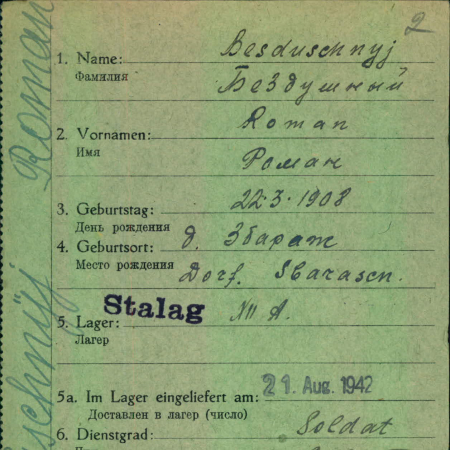 2
1. Name: Besduschnyj
Фамилия Бездушный
2. Vornamen: Roman
Имя Роман
3. Geburtstag: 22.3.1908
День рождения
4. Geburtsort: д. Збараж
Место рождения Dorf.
Stalag
5. Lager: A.
Лагерь
5a. Im Lager eingeliefert am: 21. Aug. 1942
Доставлен в лагерь (число)
6. Dienstgrad: Soldat
Roman